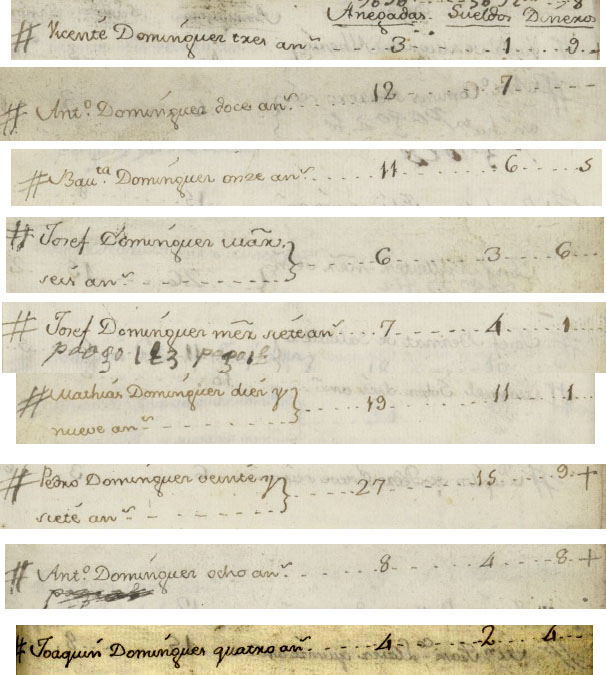 Anegadas. Sueldos Dineros
# Vicente Dominguez tres an.s - - - 3 - - - 1 - - 9 -
# Ant.o Dominguez doce an.s - - - 12 - - - 7 - - -
# Bau.ta Dominguez onze an.s - - - 11 - - - 6 - - - 5
# Josef Dominguez max.
seis an.s - - - - - - - } - - - 6 - - - 3 - - - 6 -
# Josef Dominguez men.r siete an.s - - - 7 - - - 4 - - - 1 -
# Mathias Dominguez diez y
nueve an.s - - - - - - } - - - 19 - - - 11 - - - 1 -
# Pedro Dominguez veinte y
siete an.s - - - - - - } - - - 27 - - - 15 - - - 9 +
# Ant.o Dominguez ocho an.s - - - 8 - - - 4 - - - 8 +
# Joaquin Dominguez quatro an.s - - - 4 - - - 2 - - - 4 -